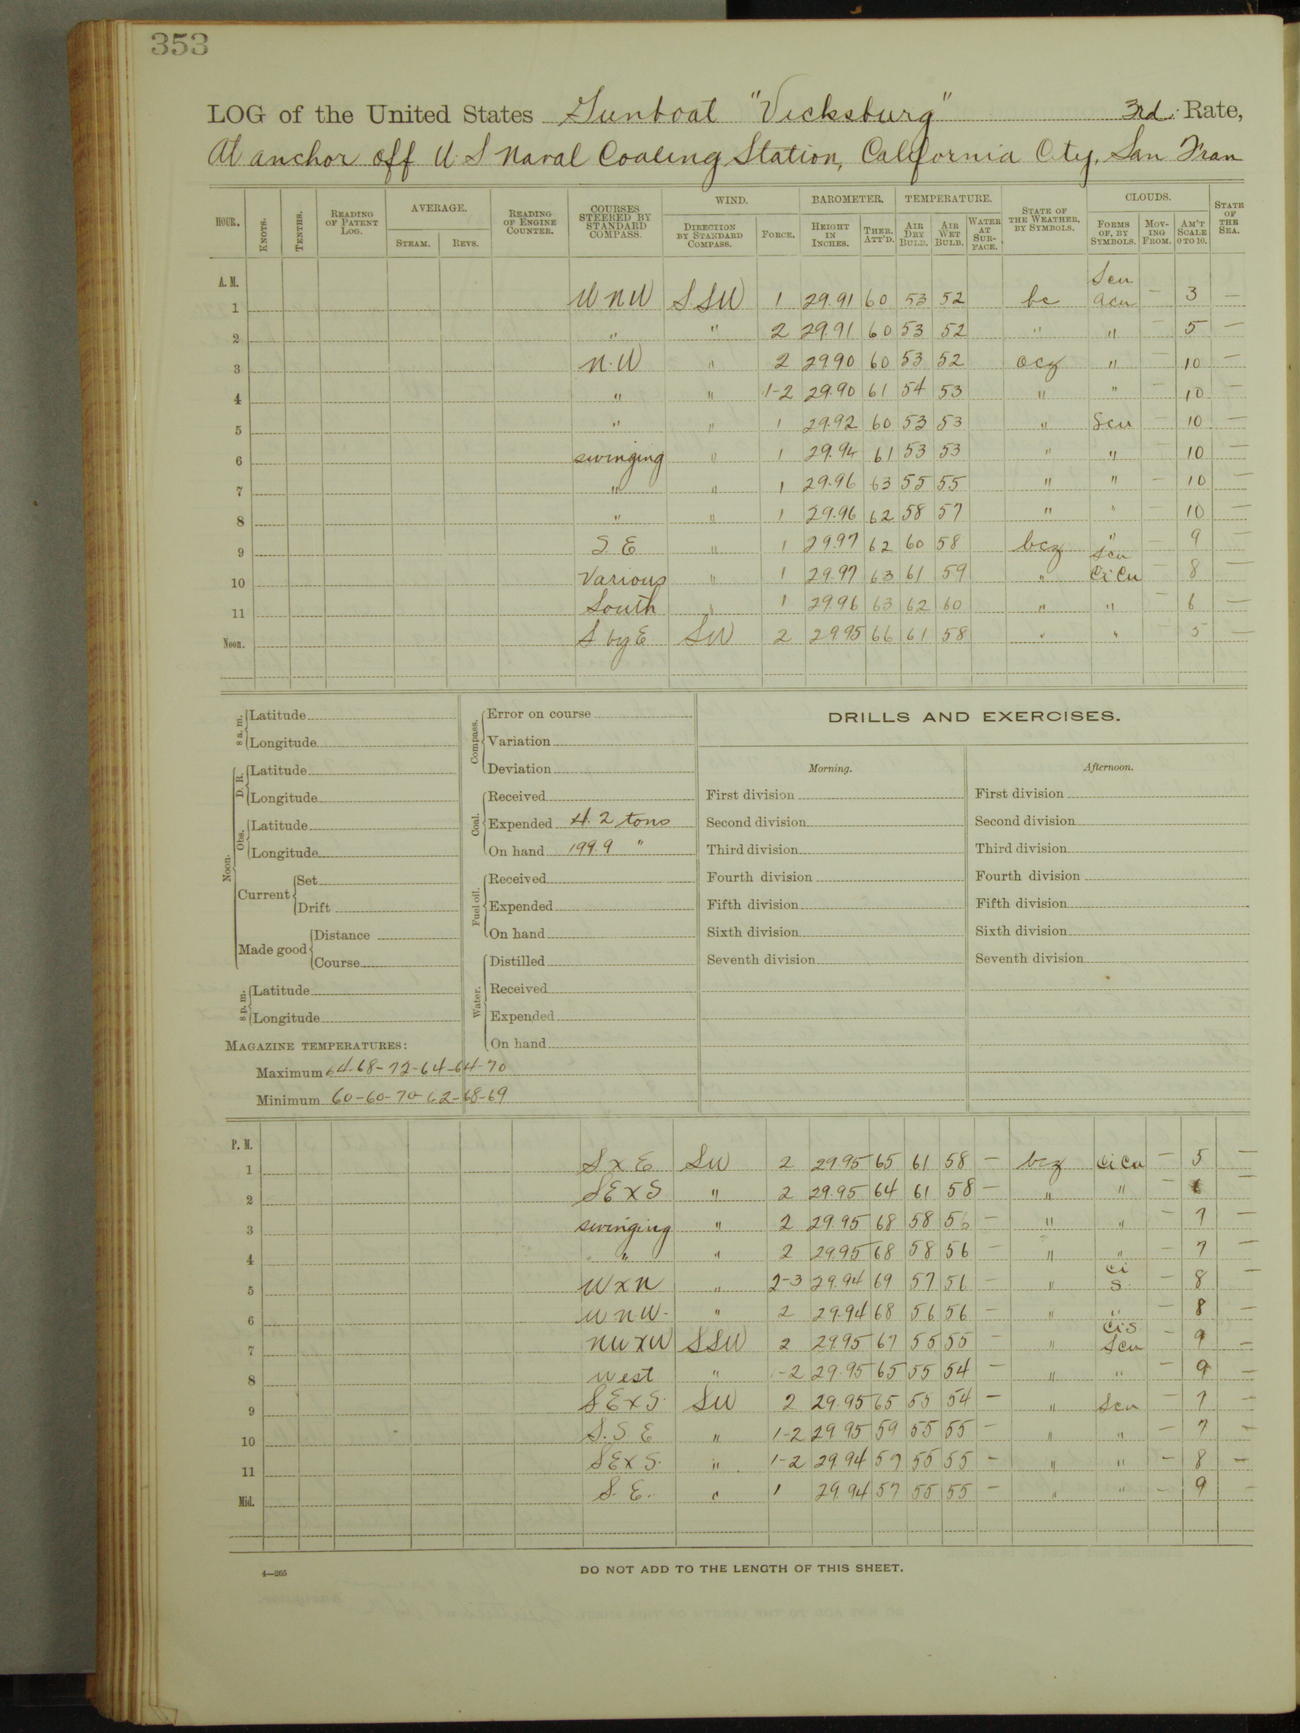 353
LOG of the United States Gunboat "Vicksburg" 3rd. Rate,
At anchor off U. S Naval Coaling Station, California City, San Fran
HOUR. KNOTS. TENTHS. READING OF PATENT LOG. AVERAGE. STEAM. REVS. READING OF ENGINE COUNTER. COURSES STEERED BY STANDARD COMPASS. WIND. DIRECTION BY STANDARD COMPASS. FORCE. BAROMETER. HEIGHT IN INCHES. THER. ATT'D. TEMPERATURE. AIR DRY BULB. AIR WET BULB. WATER AT SURFACE. STATE OF THE WEATHER, BY SYMBOLS. CLOUDS. FORMS OF, BY SYMBOLS. MOVING FROM. AM'T SCALE 0 TO 10. STATE OF THE SEA.
A. M.
1 W N W S S W 1 29.91 60 53 52 bc Scu acu — 3 —
2 " " 2 29.91 60 53 52 " " — 5 —
3 N. W " 2 29.90 60 53 52 ocz " — 10 —
4 " " 1-2 29.90 61 54 53 " " — 10 —
5 " " 1 29.92 60 53 53 " Scu — 10 —
6 swinging " 1 29.94 61 53 53 " " — 10 —
7 " " 1 29.96 63 55 55 " " — 10 —
8 " " 1 29.96 62 58 57 " " — 10 —
9 S E " 1 29.97 62 60 58 bcz " — 9 —
10 Various " 1 29.97 63 61 59 " Scu Ci Cu — 8 —
11 South " 1 29.96 63 62 60 " " — 6 —
Noon. S by E SW 2 29.95 66 61 58 " " — 5 —
8 a. m. Latitude
Longitude
Noon. D. R. Latitude
Longitude
Obs. Latitude
Longitude
Current Set
Drift
Made good Distance
Course
8 p. m. Latitude
Longitude
MAGAZINE TEMPERATURES:
Maximum 64-68-72-64-64-70
Minimum 60-60-70-62-68-69
Compass. Error on course
Variation
Deviation
Coal. Received
Expended 4.2 tons
On hand 199.9 "
Fuel oil. Received
Expended
On hand
Water. Distilled
Received
Expended
On hand
DRILLS AND EXERCISES.
Morning.
First division
Second division
Third division
Fourth division
Fifth division
Sixth division
Seventh division
Afternoon.
First division
Second division
Third division
Fourth division
Fifth division
Sixth division
Seventh division
P. M.
1 S x E SW 2 29.95 65 61 58 — bcz Ci Cu — 5 —
2 SE x S " 2 29.95 64 61 58 — " " — 6 —
3 swinging " 2 29.95 68 58 56 — " " — 7 —
4 " " 2 29.95 68 58 56 — " " — 7 —
5 W x N " 2-3 29.94 69 57 56 — " Ci S. — 8 —
6 W N W. " 2 29.94 68 56 56 — " " — 8 —
7 NW x W SSW 2 29.95 67 55 55 — " Ci S Scu — 9 —
8 West " 1-2 29.95 65 55 54 — " " — 9 —
9 SE x S. SW 2 29.95 65 55 54 — " Scu — 7 —
10 S. S E " 1-2 29.95 59 55 55 — " " — 7 —
11 SE x S. " 1-2 29.94 57 55 55 — " " — 8 —
Mid. S. E. " 1 29.94 57 55 55 — " " — 9 —
4—265
DO NOT ADD TO THE LENGTH OF THIS SHEET.